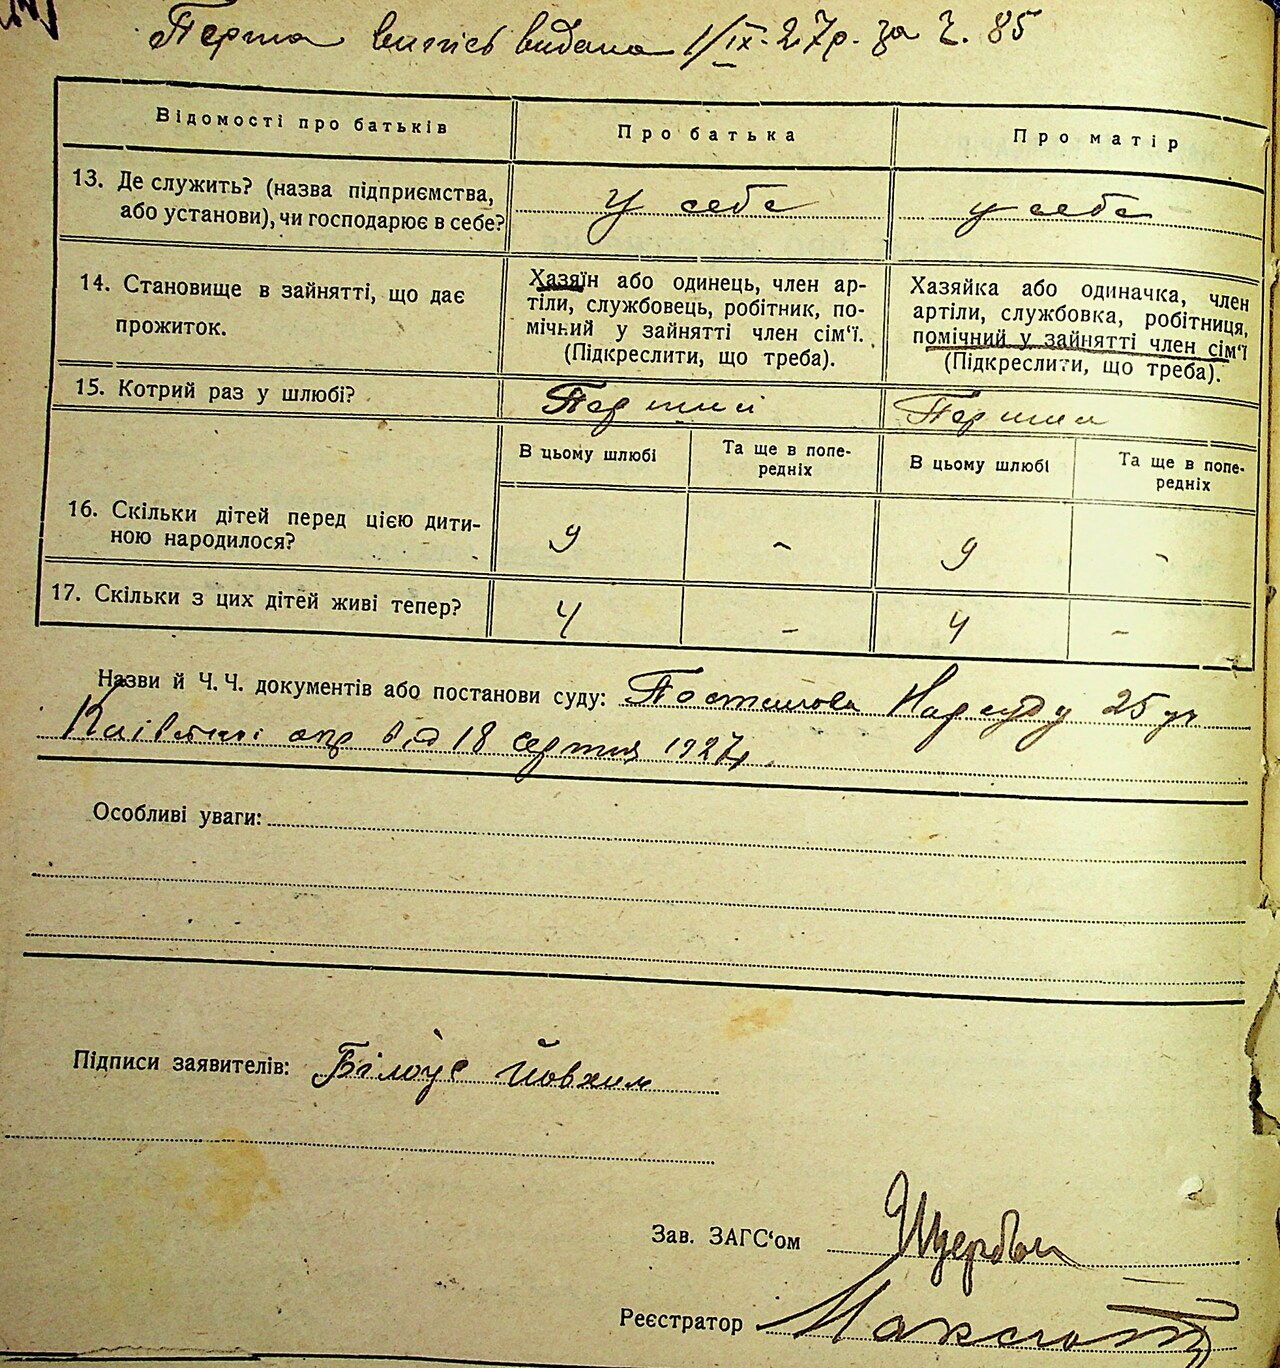 Перша випись видана 1/IX-27р. за Ч. 85
Відомості про батьків
Про батька
Про матір
13. Де служить? (назва підприємства,
або установи), чи господарює в себе?
У себе
у себе
14. Становище в зайнятті, що дає
прожиток.
Хазяїн або одинець, член ар-
тіли, службовець, робітник, по-
мічний у зайнятті член сім‘ї.
(Підкреслити, що треба).
Хазяйка або одиначка, член
артіли, службовка, робітниця,
помічний у зайнятті член сім‘ї
(Підкреслити, що треба).
15. Котрий раз у шлюбі?
Перший
Перший
В цьому шлюбі
Та ще в попе-
редніх
В цьому шлюбі
Та ще в попе-
редніх
16. Скільки дітей перед цією дити-
ною народилося?
9
-
9
-
17. Скільки з цих дітей живі тепер?
4
-
4
-
Назви й Ч. Ч. документів або постанови суду: Постанова Нарсуду 25
від 18 серпня 1927
Особливі уваги:
Підписи заявителів: Білоус Йовхим
Зав. ЗАГС‘ом
Реєстратор